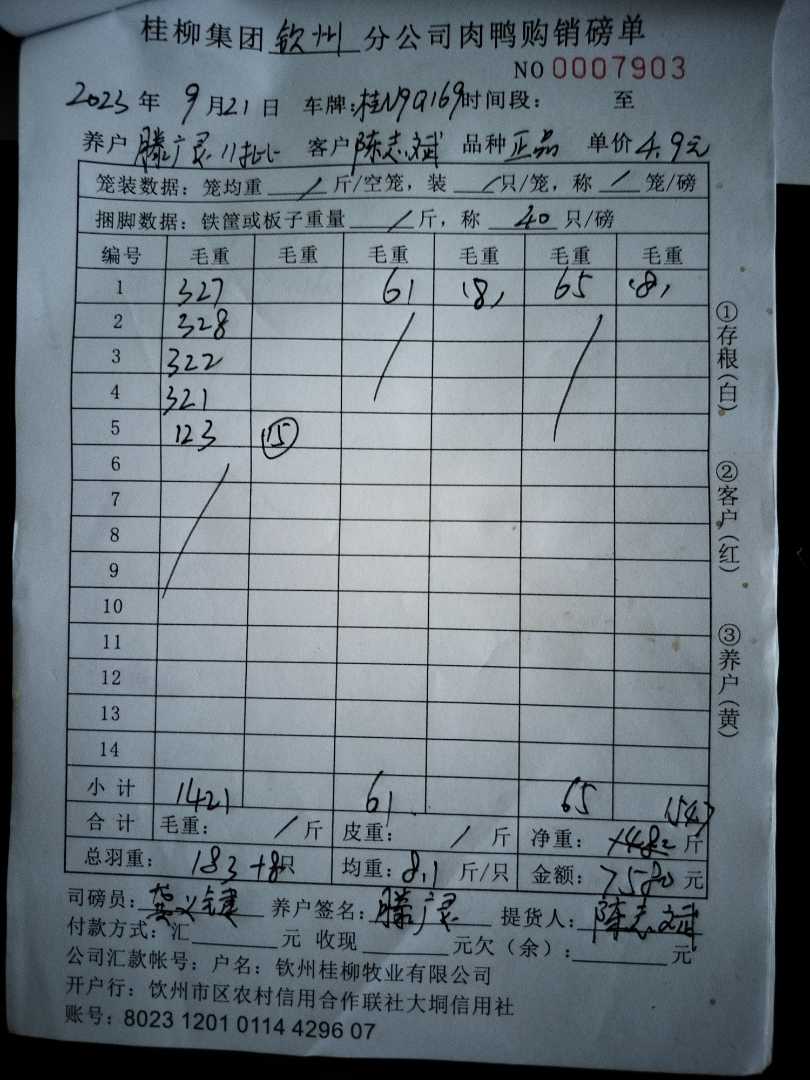 桂柳集团钦州分公司肉鸭购销磅单
NO 0007903
2023年9月21日 车牌:桂N9Q169时间段: 至
养户 滕广灵 11批 客户陈志斌 品种正品 单价4.9元
笼装数据: 笼均重 / 斤/空笼, 装 / 只/笼, 称 / 笼/磅
捆脚数据: 铁筐或板子重量 / 斤, 称 40 只/磅
编号 毛重 毛重 毛重 毛重 毛重 毛重
1 327 61 (8) 65 (8)
2 328
3 322
4 321
5 123 (15)
6
7
8
9
10
11
12
13
14
小计 1421 61 65 1547
合计 毛重: / 斤 皮重: / 斤 净重: 1482 斤
总羽重: 183+8只 均重: 8.1 斤/只 金额: 7580 元
司磅员: 龚义键 养户签名: 滕广灵 提货人: 陈志斌
付款方式: 汇 元 收现 元欠(余): 元
公司汇款帐号: 户名: 钦州桂柳牧业有限公司
开户行: 饮州市区农村信用合作联社大垌信用社
账号: 8023 1201 0114 4296 07
①存根(白)
②客户(红)
③养户(黄)